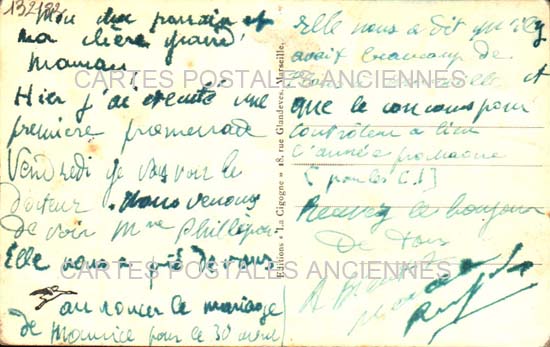 132182
Mon cher parrain et
ma chère grand'
maman,
Hier j'ai exécuté une
première promenade
Vendredi je vais voir le
docteur. Nous venons
de voir Mme Phillipon
Elle nous a prié de vous
annoncer le mariage
de Maurice pour le 30 avril
Elle nous a dit qu'il y
avait beaucoup de
et
que le concours pour
contrôleur a lieu
l'année prochaine
[pour les C.I]
Recevez le bonjour
De tous
Editions « La Cigogne » 18, rue Glandeves, Marseille.
CARTES POSTALES ANCIENNES
CARTES POSTALES ANCIENNES